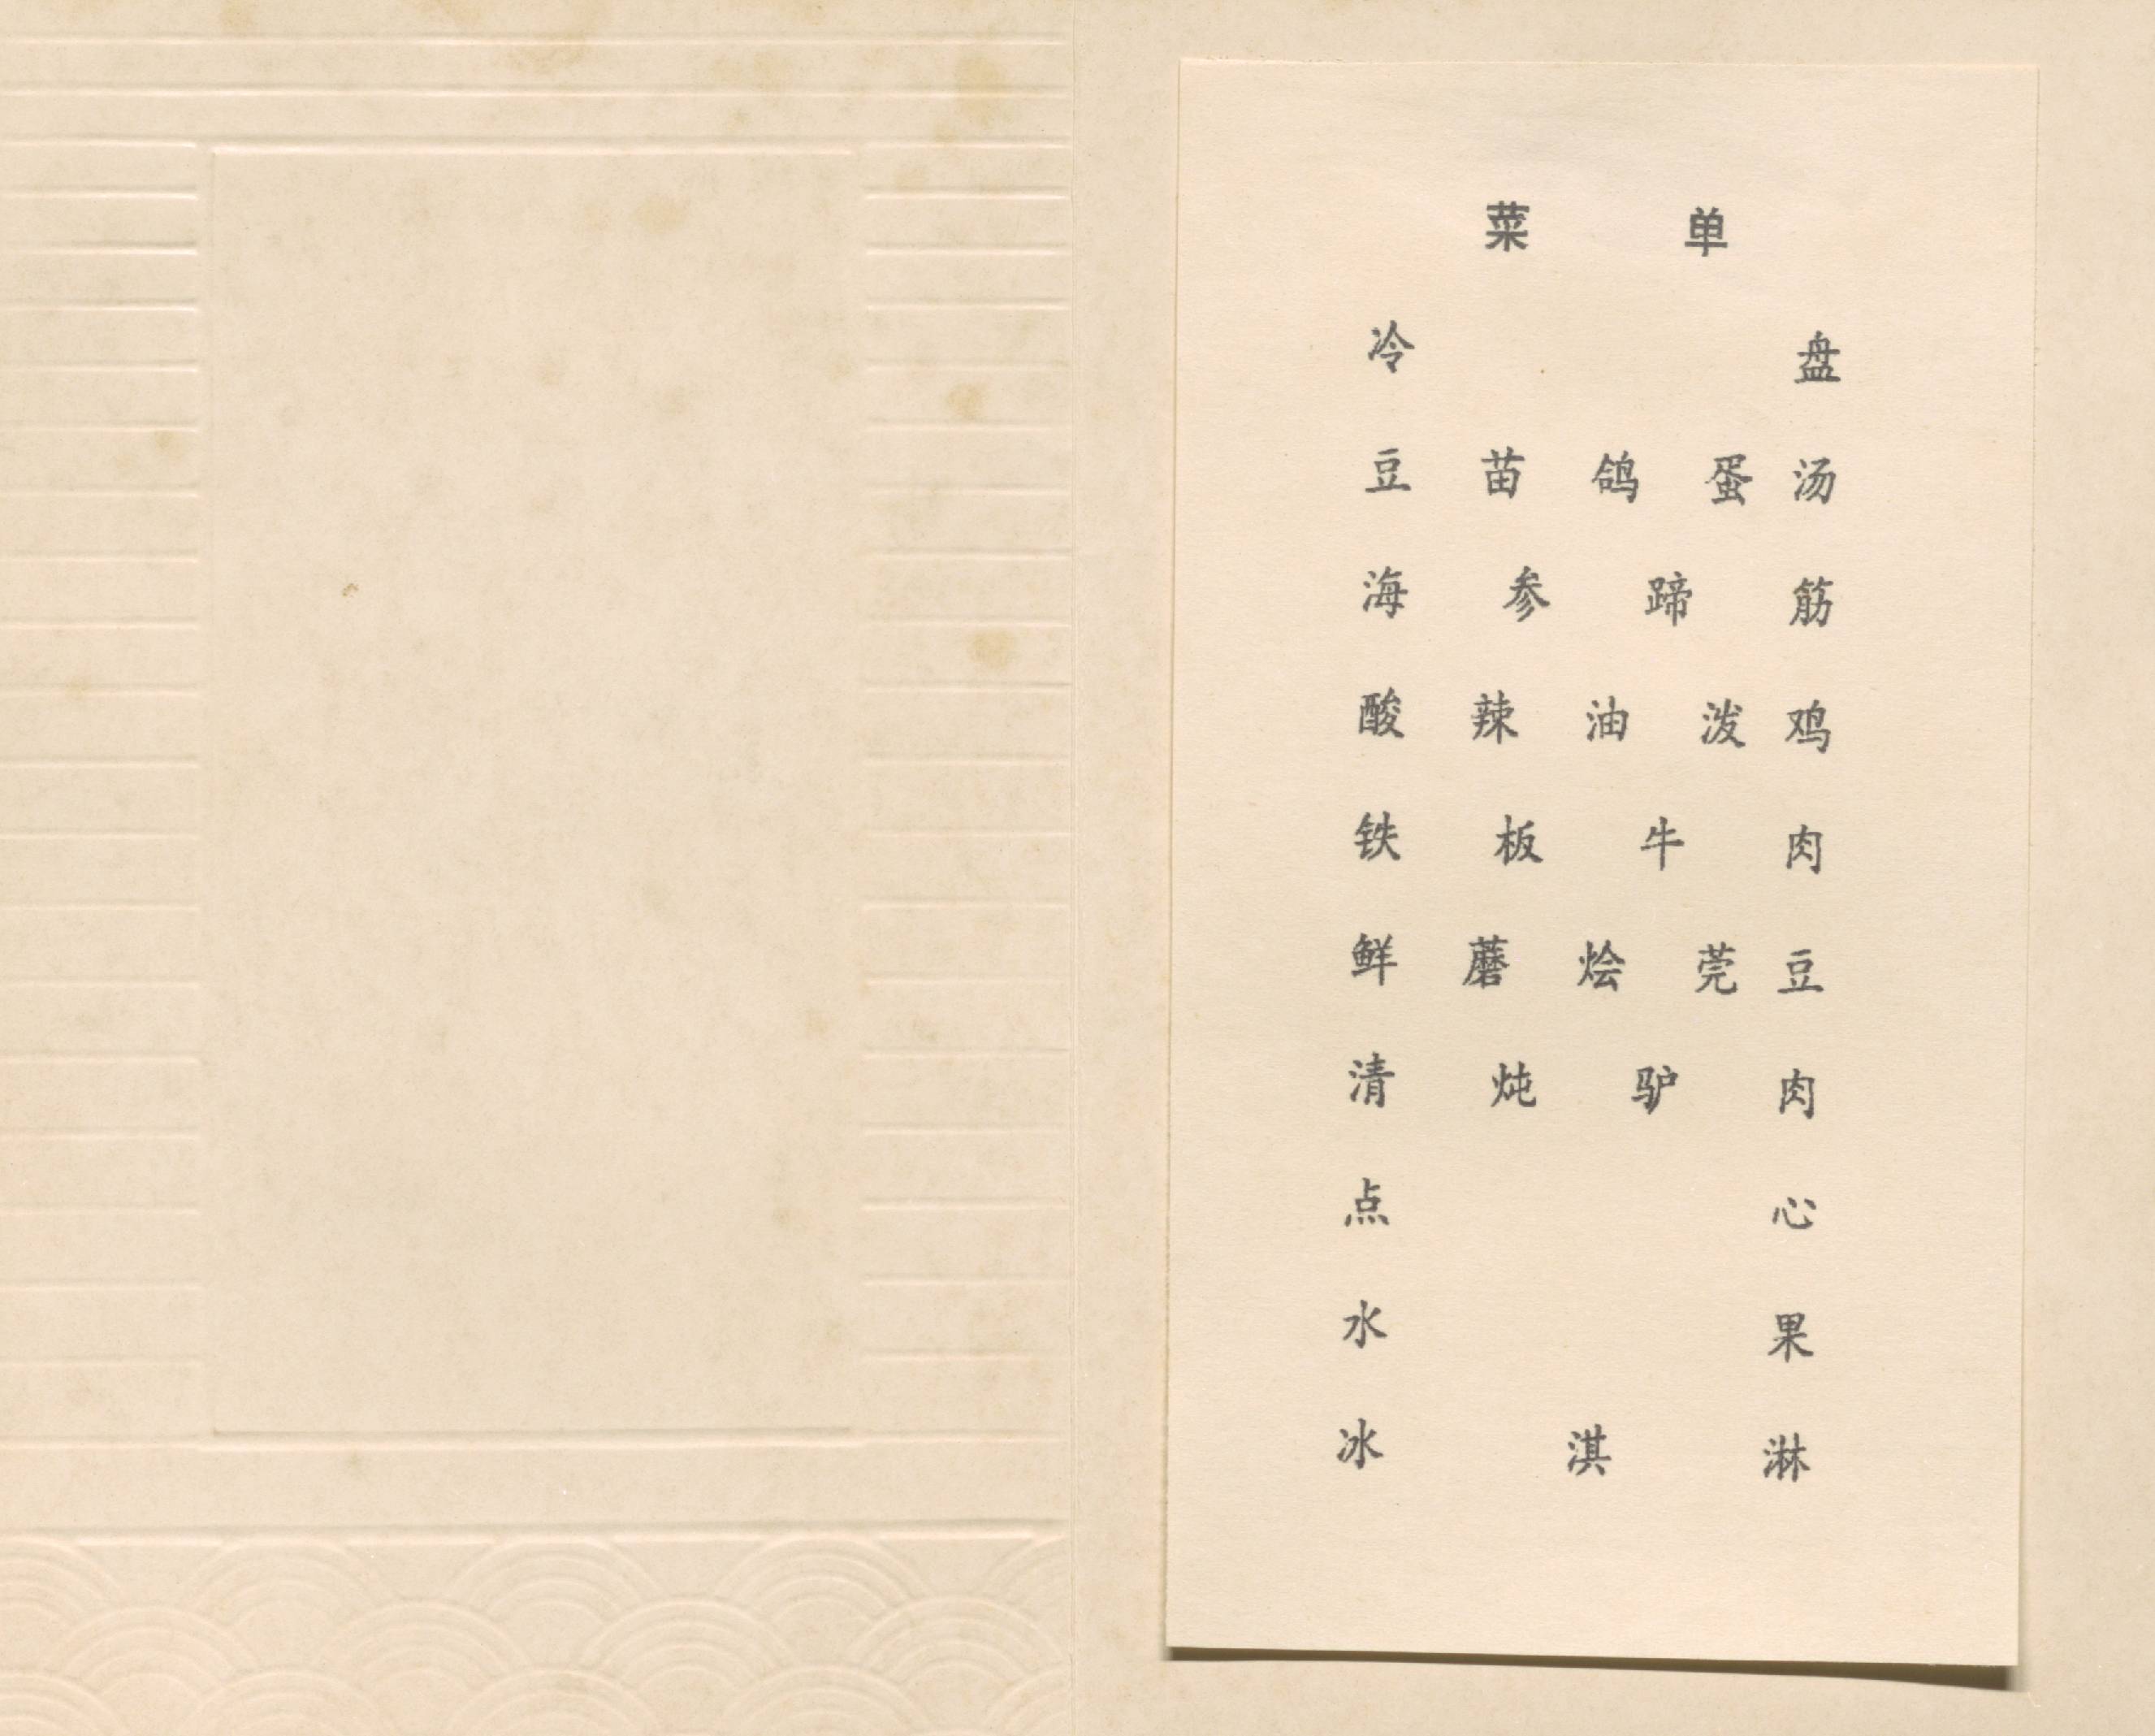 菜单
冷盘
豆苗鸽蛋汤
海参蹄筋
酸辣油泼鸡
铁板牛肉
鲜蘑烩莞豆
清炖驴肉
点心
水果
冰淇淋